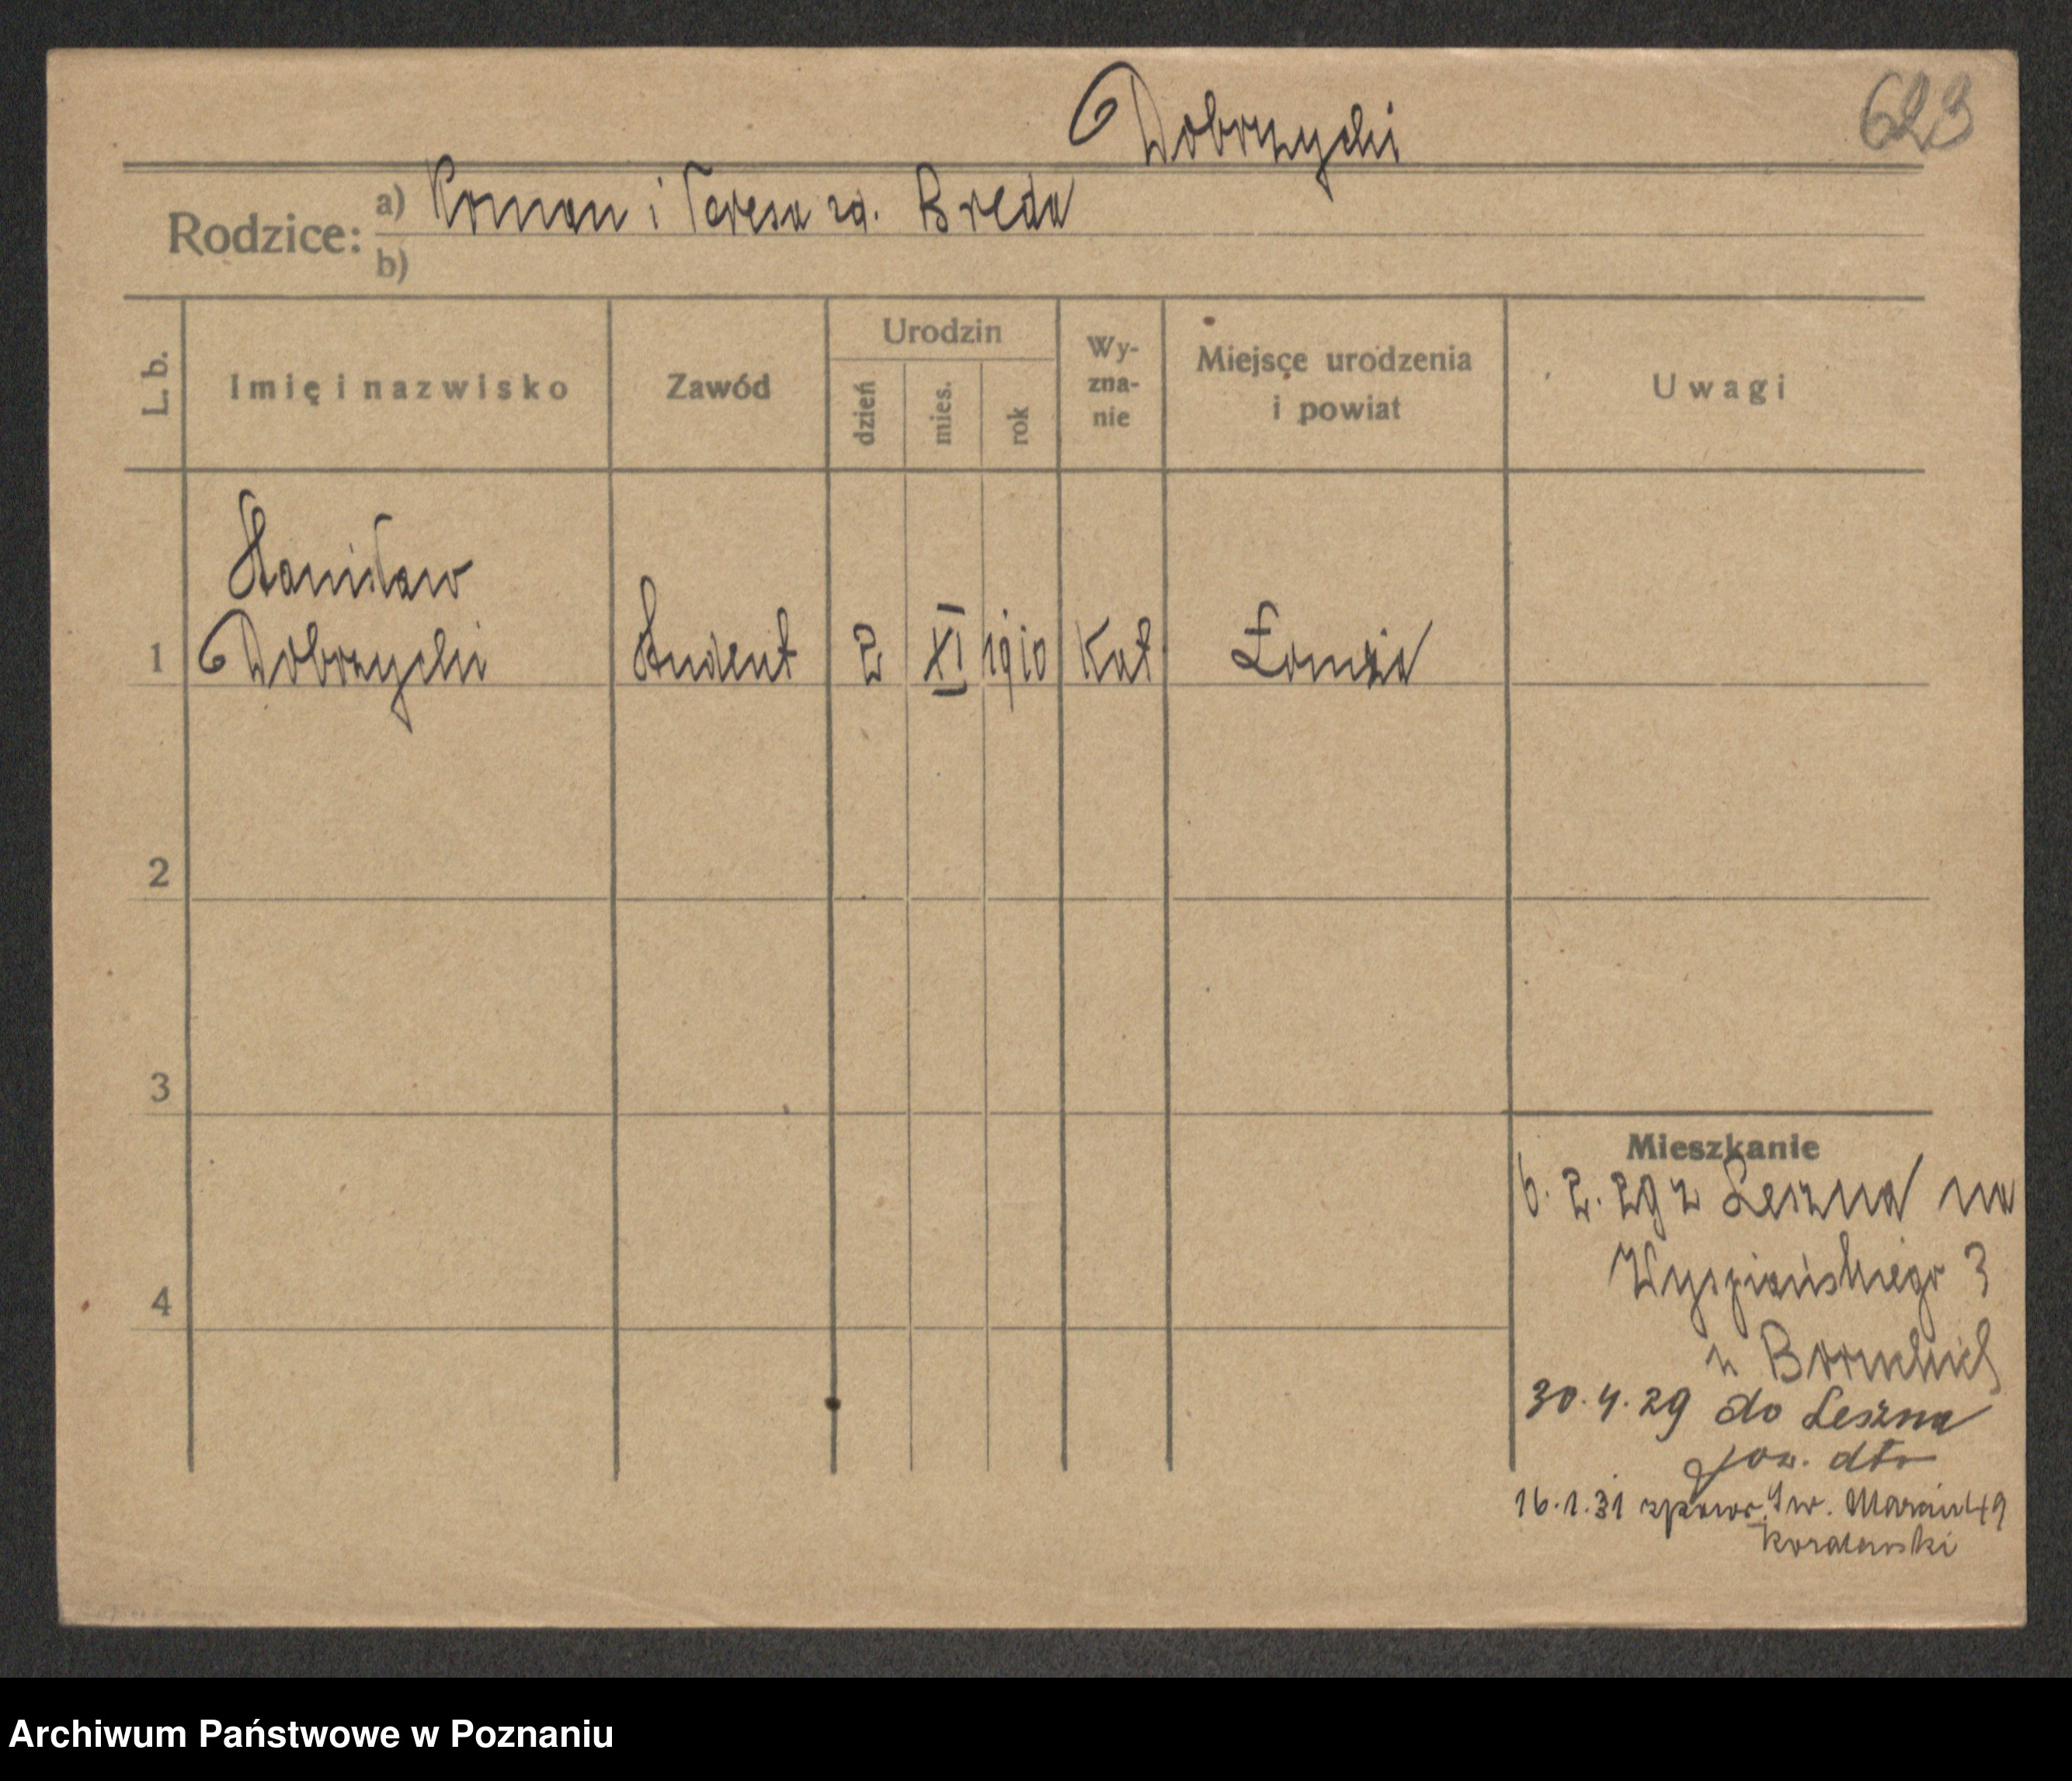 Dobrzycki
623
Rodzice:
a) Roman i Teresa zd. Breda
b)
L. b.
Imię i nazwisko
Zawód
Urodzin
dzień
mies.
rok
Wy-
zna-
nie
Miejsce urodzenia
i powiat
Uwagi
Stanisław
1 Dobrzycki Student 2 XI 1910 Kat. Łomża
2
3
4
Mieszkanie
6. 2. 29 z Leszna na
Wyspiańskiego 3
u
30. 4. 29 do Leszna
pow. dto
16.1.31 zpowr. Św. Marcin 49
Archiwum Państwowe w Poznaniu